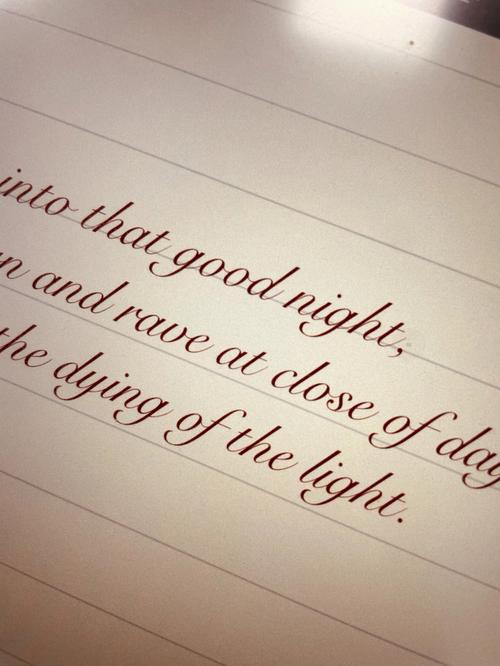 into that good night,
and rave at close of day
the dying of the light.